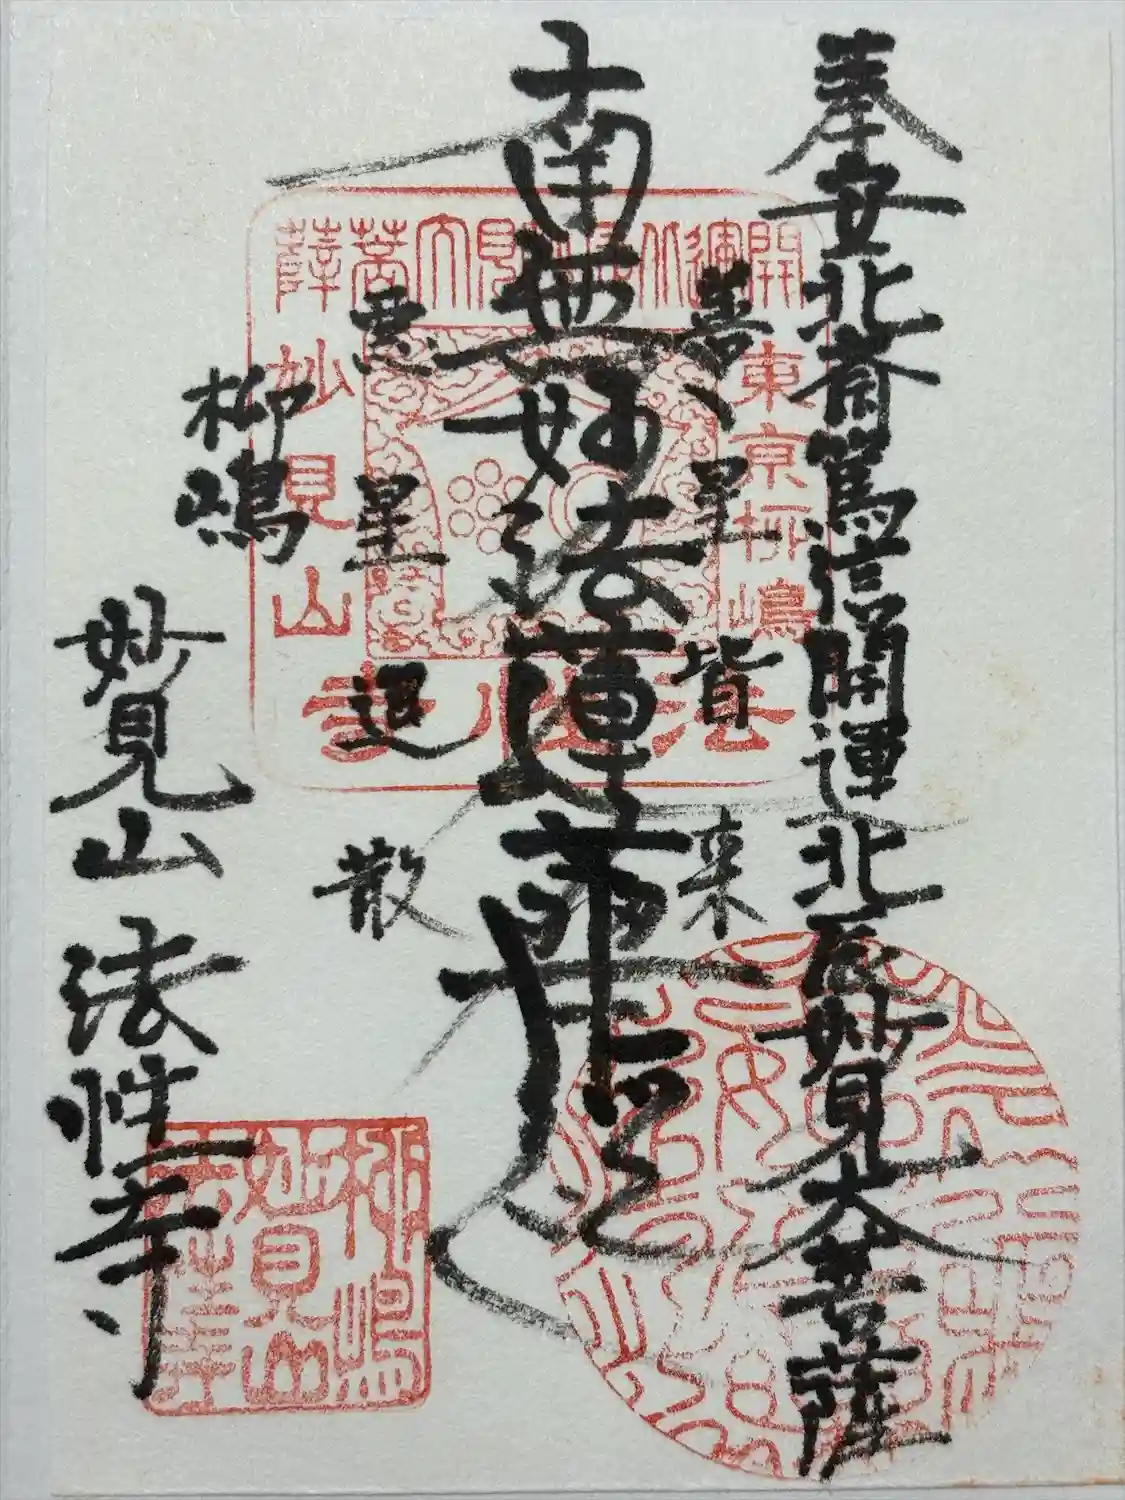 奉安北斎篤信開運北辰妙見大菩薩
善星皆来
南無妙法蓮華経
悪星退散
柳嶋
妙見山法性寺
開運北辰妙見大菩薩
東京柳嶋
妙見山
法性寺
柳嶋
妙見山